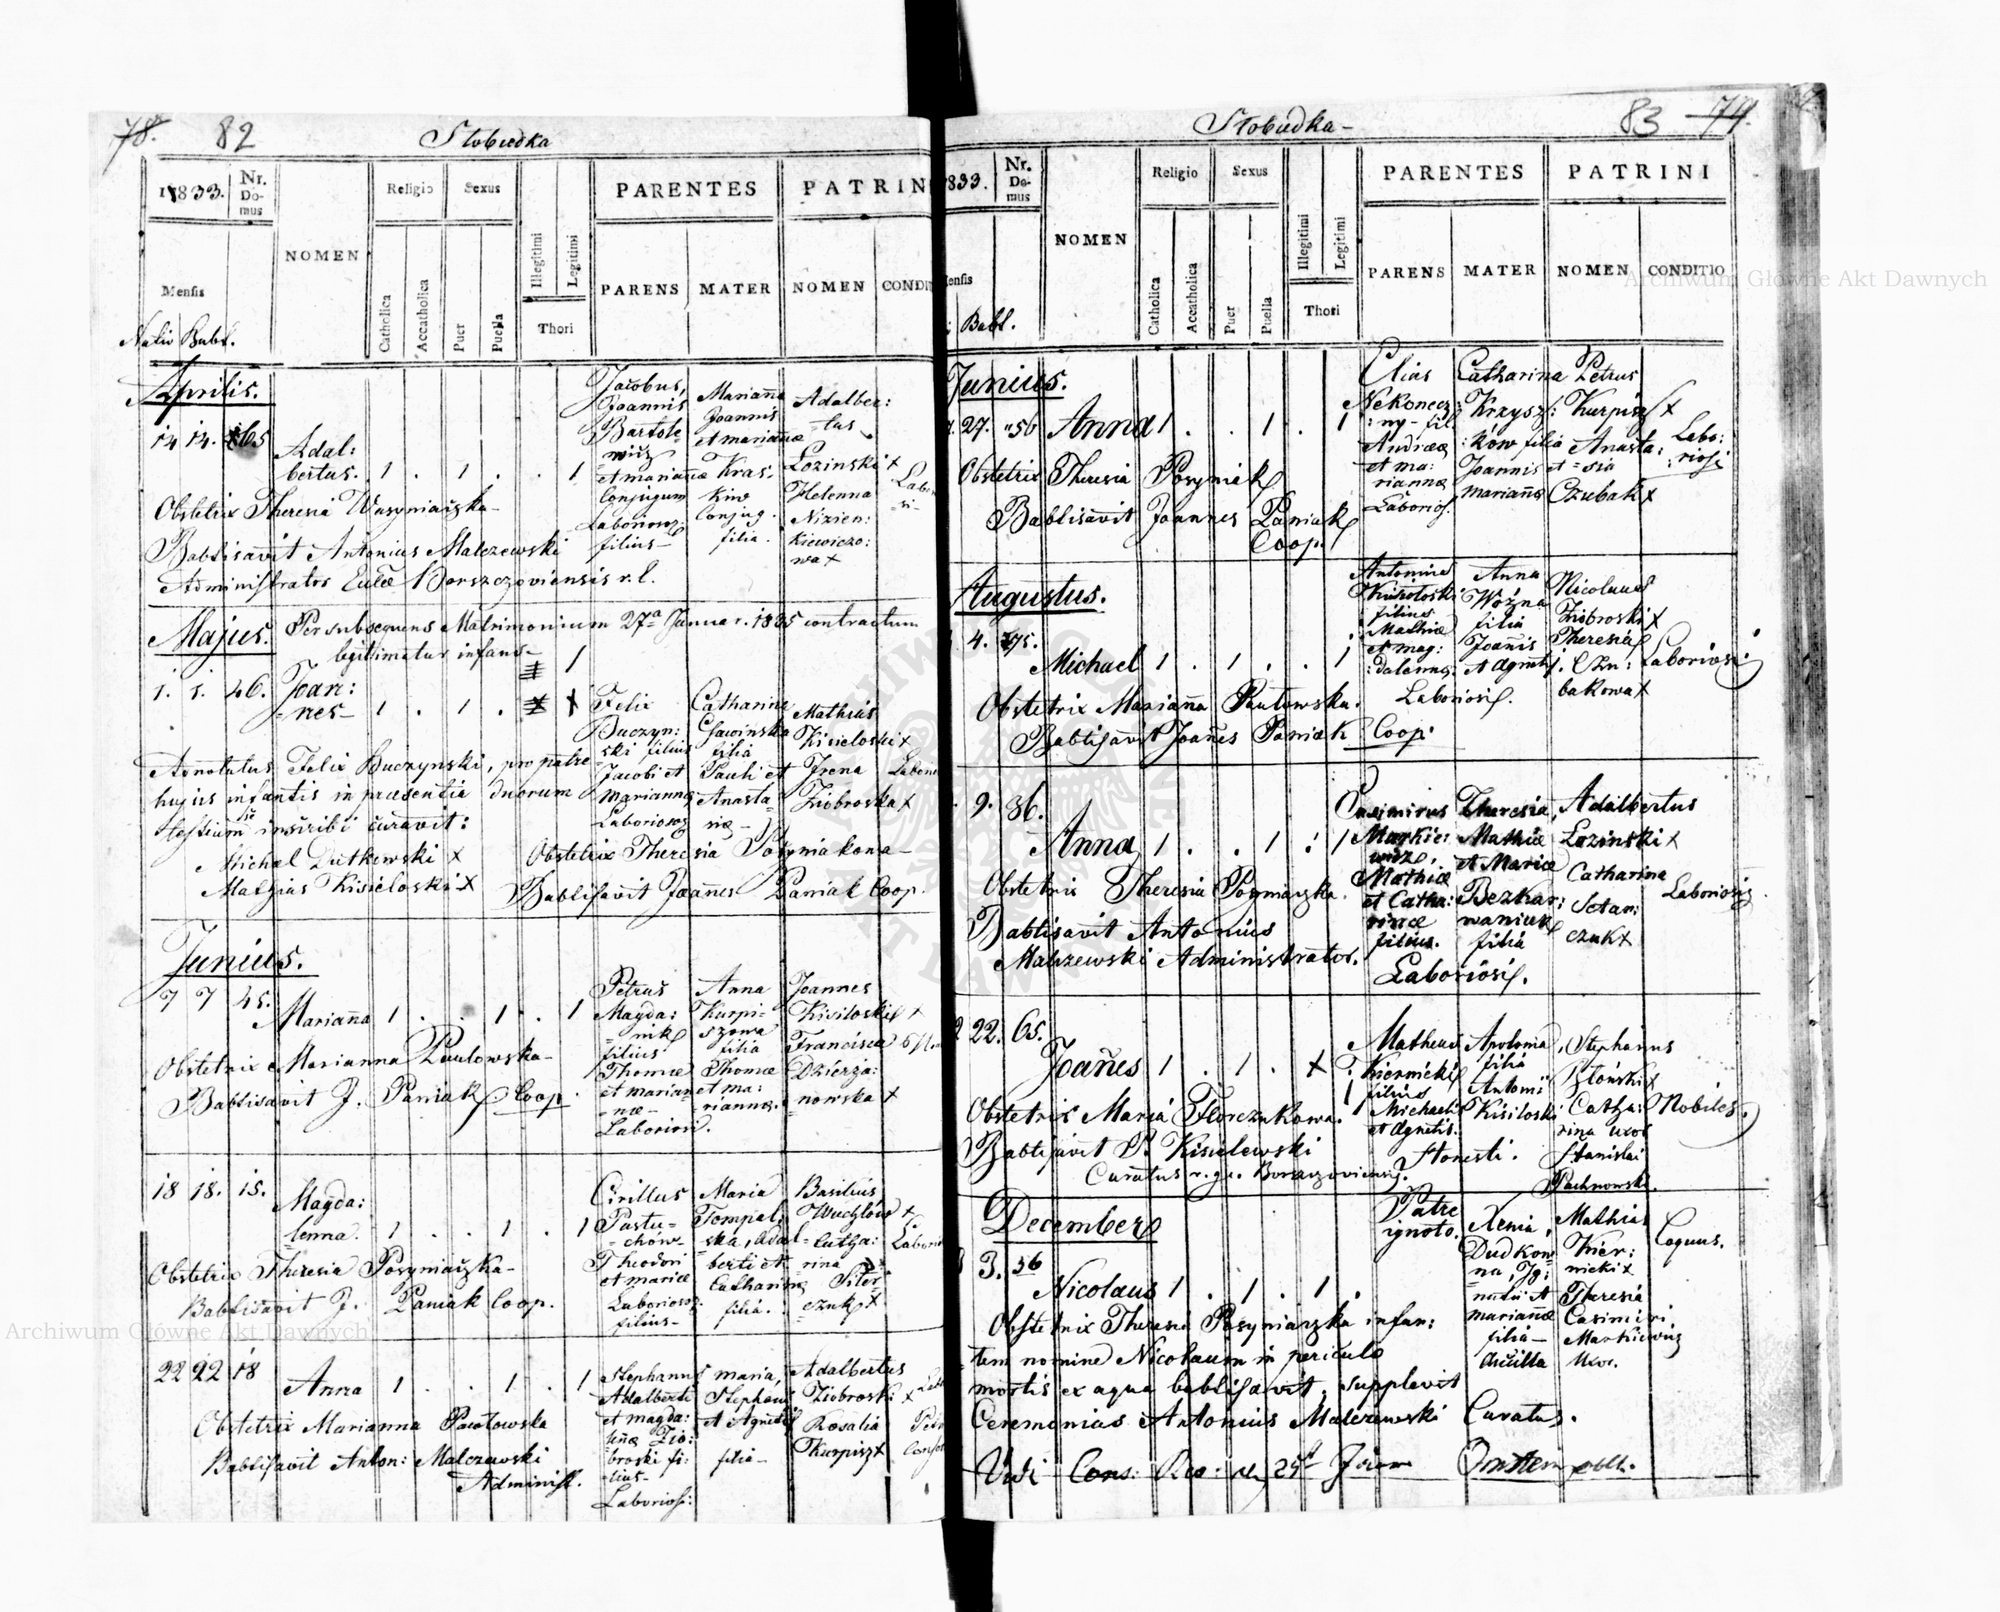 78. 82 Słobudka
1833. Nr. Domus
NOMEN
Religio Sexus
PARENTES PATRIN
Mensis
Catholica Accatholica Puer Puella Illegitimi Legitimi
Thori
PARENS MATER NOMEN CONDIT
Nativ Babt.
Aprilis.
14 14. 65 Adal:
bertus. 1 . 1 . . 1
Jacobus,
Joannis
Bartole-
wicz
et mariannæ
Conjugum
Laborios:
filius-
Mariana
Joannis
et mariannæ
Kras:
kiw
Conjug.
filia.
Adalber:
-tus
Lozinski x
Helenna
Nizien:
kiewiczo:
wa x
Obstetrix Theresia Wasyniaszka-
Babtisavit Antonius Malczewski
Administrator Eccłæ Borszczoviensis r. l.
Majus. Per subsequens Matrimonium 27a Januar. 1835 contractum
legitimatur infans- 1
1. 1. 46. Joan:
-nes- 1 . 1 .
Felix
Buczyn:
ski filius
Jacobi et
Mariannæ
Laborioso
Catharina
Gawinska
filia
Pauli et
Anasta-
siæ-
Mathias
Kisieloski x
Irena
Ziobroska x
Annotatus Felix Buczynski, pro patre
hujus infantis in præsentia duorum
testium inscribi curavit:
Michal Dutkowski x
Matyias Kisieloski x
Obstetrix Theresia Posyniakowa-
Babtisavit Joañes Paniak Coop.
Junius.
7 7 45. Marianna 1 . . 1 . 1
Petrus
Magda:
-nik
filius
Thomæ
et marian
-næ-
Laboriosi.
Anna
Kurpi-
szowa
filia
Thomæ
et ma:
riannæ.
Joannes
Kisiloski x
Francisca
Dzierża:
nowska x
Obstetrix Marianna Paulowska-
Babtisavit J. Paniak Coop.
18 18. 15. Magda:
-lenna. 1 . . 1 . 1
Cirillus
Pastu-
-chów
Theodori
et mariæ
Laborioso
filius-
Maria
Tompal-
ska, Adal
berti et
Catharinæ
filia.
Basilius
x
Catha:
rina
Siter
czuk x
Obstetrix Theresia Posyniaszka-
Babtisavit J. Paniak Coop.
22 22 18 Anna 1 . . 1 . 1
Stephanus
Adalberti
et magda:
lenæ Zio:
broski fi:
lius-
Laboriosi:
maria,
Stephani
et Agnetis
filia-
Adalbertus
Ziobroski x
Rosalia
Kurpisz x
Obstetrix Marianna Pawłowska
Babtisavit Anton: Malczewski
Administ.
Słobudka- 83 74.
1833. Nr. Domus
NOMEN
Religio Sexus
PARENTES PATRINI
Catholica Accatholica Puer Puella Illegitimi Legitimi
Thori
PARENS MATER NOMEN CONDITIO
Babt.
Junius.
27. 56 Anna 1 . . 1 . 1
Elias
Nekonecz:
:ny- fil
Andreæ
et ma:
riannæ
Laborios.
Catharina
Krzysz:
:ków filia
Joannis et
mariannæ
Petrus
Kurpisz x
Anasta:
-sia
Czubak x
Labo:
riosi
Obstetrix Theresia Posyniak
Babtisavit Joannes Paniak
Coop.
Augustus.
4. 75.
Michael 1 . 1 . . 1
Antonius
Kisieloski
filius
Mathiæ
et mag:
:dalennæ
Laboriosi.
Anna
Woźna
filia
Joanis
et Agnetis
Nicolaus
Ziobroski x
Theresia
Czu:
bakowa x
Laboriosi
Obstetrix Marianna Pawlowska.
Babtisavit Joañes Paniak Coop.
9. 36.
Anna 1 . . 1 : 1
Casimirus
Markie:
wicz,
Mathiæ
et Catha:
rinæ
filius.
Theresia,
Mathiæ
et Mariæ
Bezkar:
waniuk
filia
Laboriosi.
Adalbertus
Lozinski x
Catharina
Setar:
czuk x
Laboriosi
Obstetrix Theresia Posyniaszka.
Babtisavit Antonius
Malczewski Administrator.
22. 65.
Joañes 1 . 1 . x 1
Matheus
Kiernicki
filius
Michaeli
et Agnetis.
Apolonia,
filia
Antoni
Kisiloski
Honesti.
Stephanus
Błonski x
Catha:
rina uxor
Stanislai
Pachnowski.
Nobiles.
Obstetrix Maria Florczukowa.
Babtisavit P. Kisielewski
Curatus r. gr. Borszczoviensis.
December
3. 56
Nicolaus 1 . 1 . 1 .
Patre
ignoto.
Xenia,
Dudkow
na, Ig:
natii et
mariannæ
filia-
Ancilla
Mathias
Kier:
nicki x
Theresia
Casimiri,
Markiewicz
Uxor.
Coquus.
Obstetrix Theresia Posyniaszka infan:
tem nomine Nicolaum in periculo
mortis ex aqua babtisavit, supplevit
Ceremonias Antonius Malczewski Curatus.
Vidi Cons: 25
Archiwum Główne Akt Dawnych
Archiwum Główne Akt Dawnych